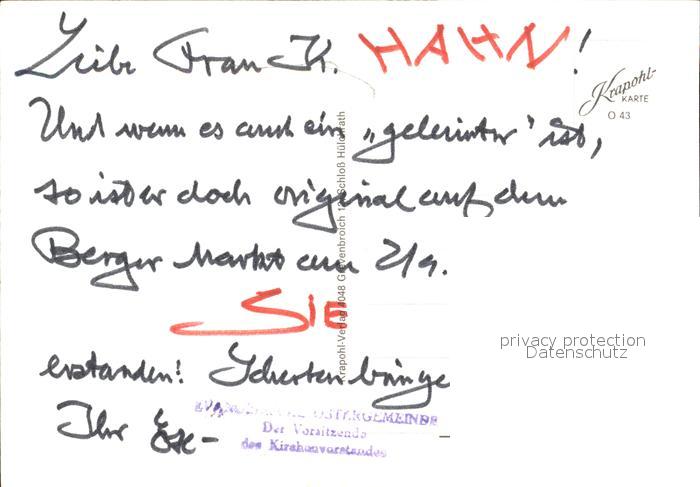 Liebe Frau K. HAHN!
Und wenn es auch ein „gelernter" ist,
so ist er doch original auf dem
Berger Markt am 2/9.
SIE
erstanden! Scherben bringe
Ihr
OSTERGEMEINDE
Der Vorsitzende
des Kirchenvorstandes
Krapohl-
KARTE
O 43
Krapohl-Verlag 4048 Grevenbroich 12 Schloß Hülchrath
privacy protection
Datenschutz